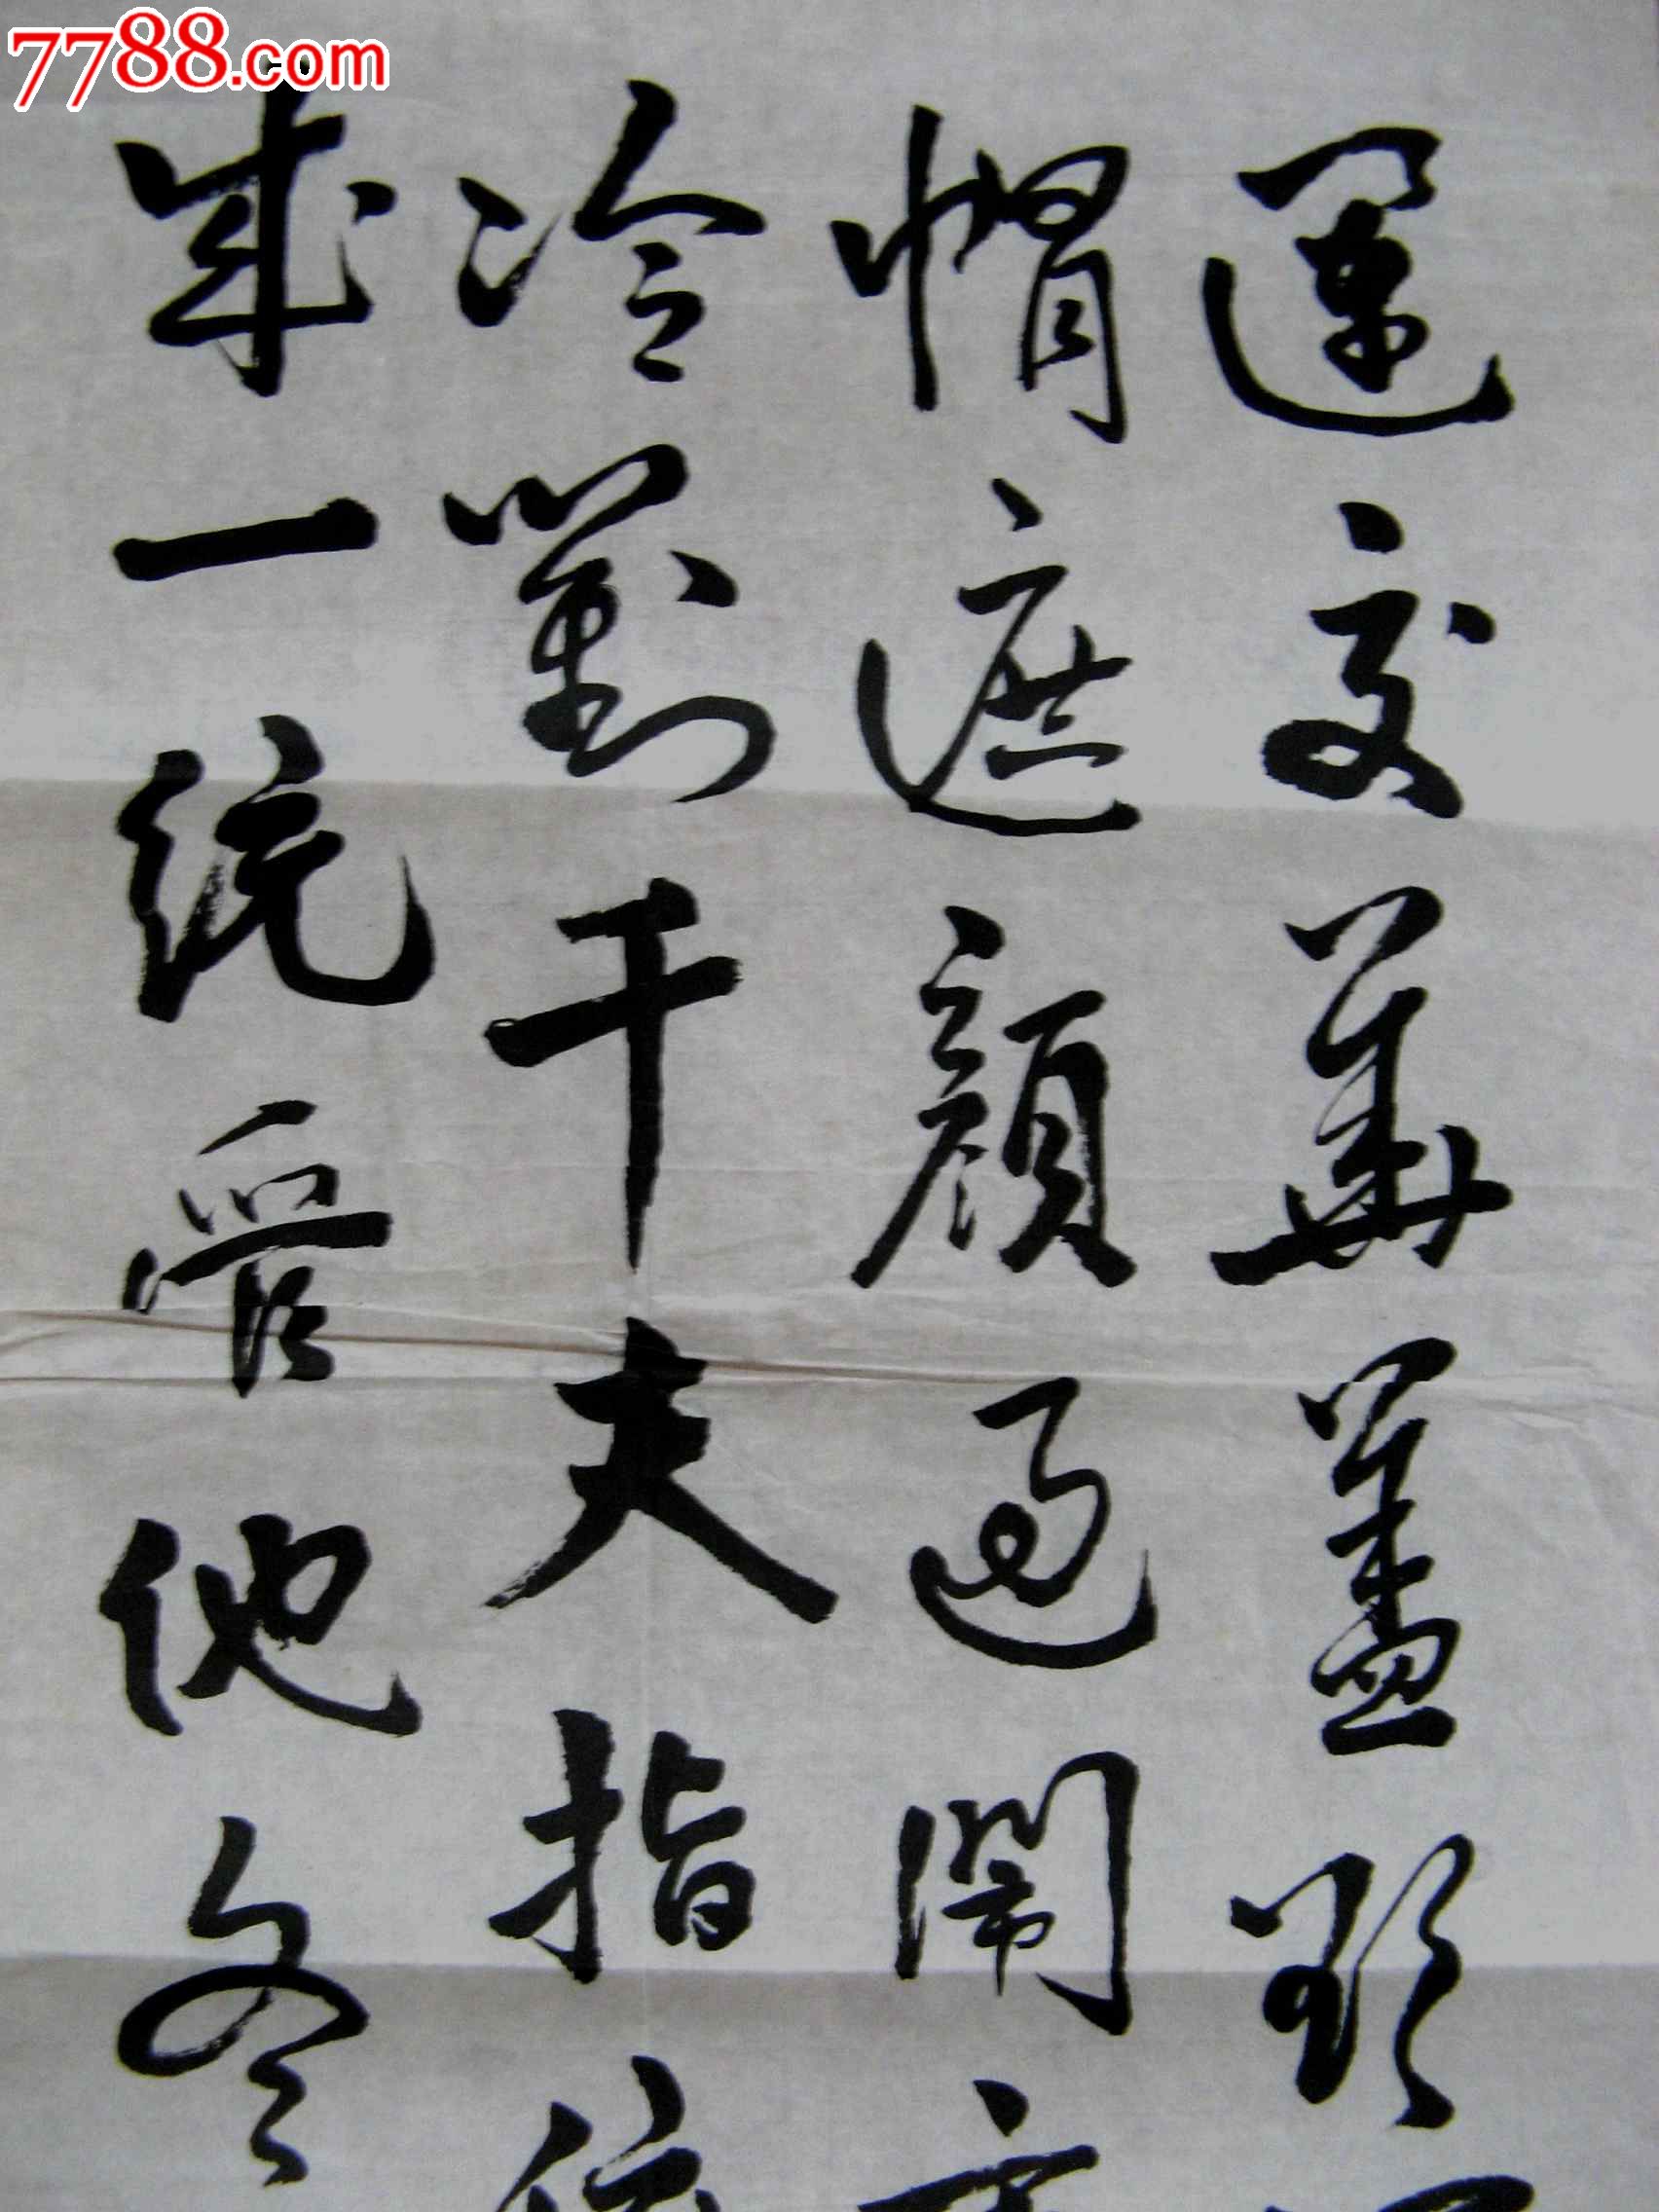 7788.com
運交華蓋欲
帽遮顏過鬧
冷對千夫指
成一統管他冬